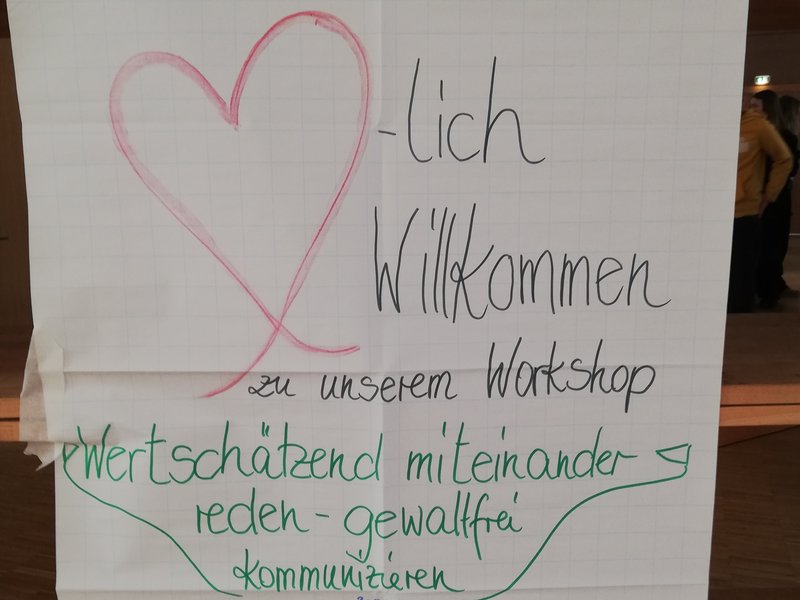 -lich
Willkommen
zu unserem Workshop
Wertschätzend miteinander
reden - gewaltfrei
kommunizieren